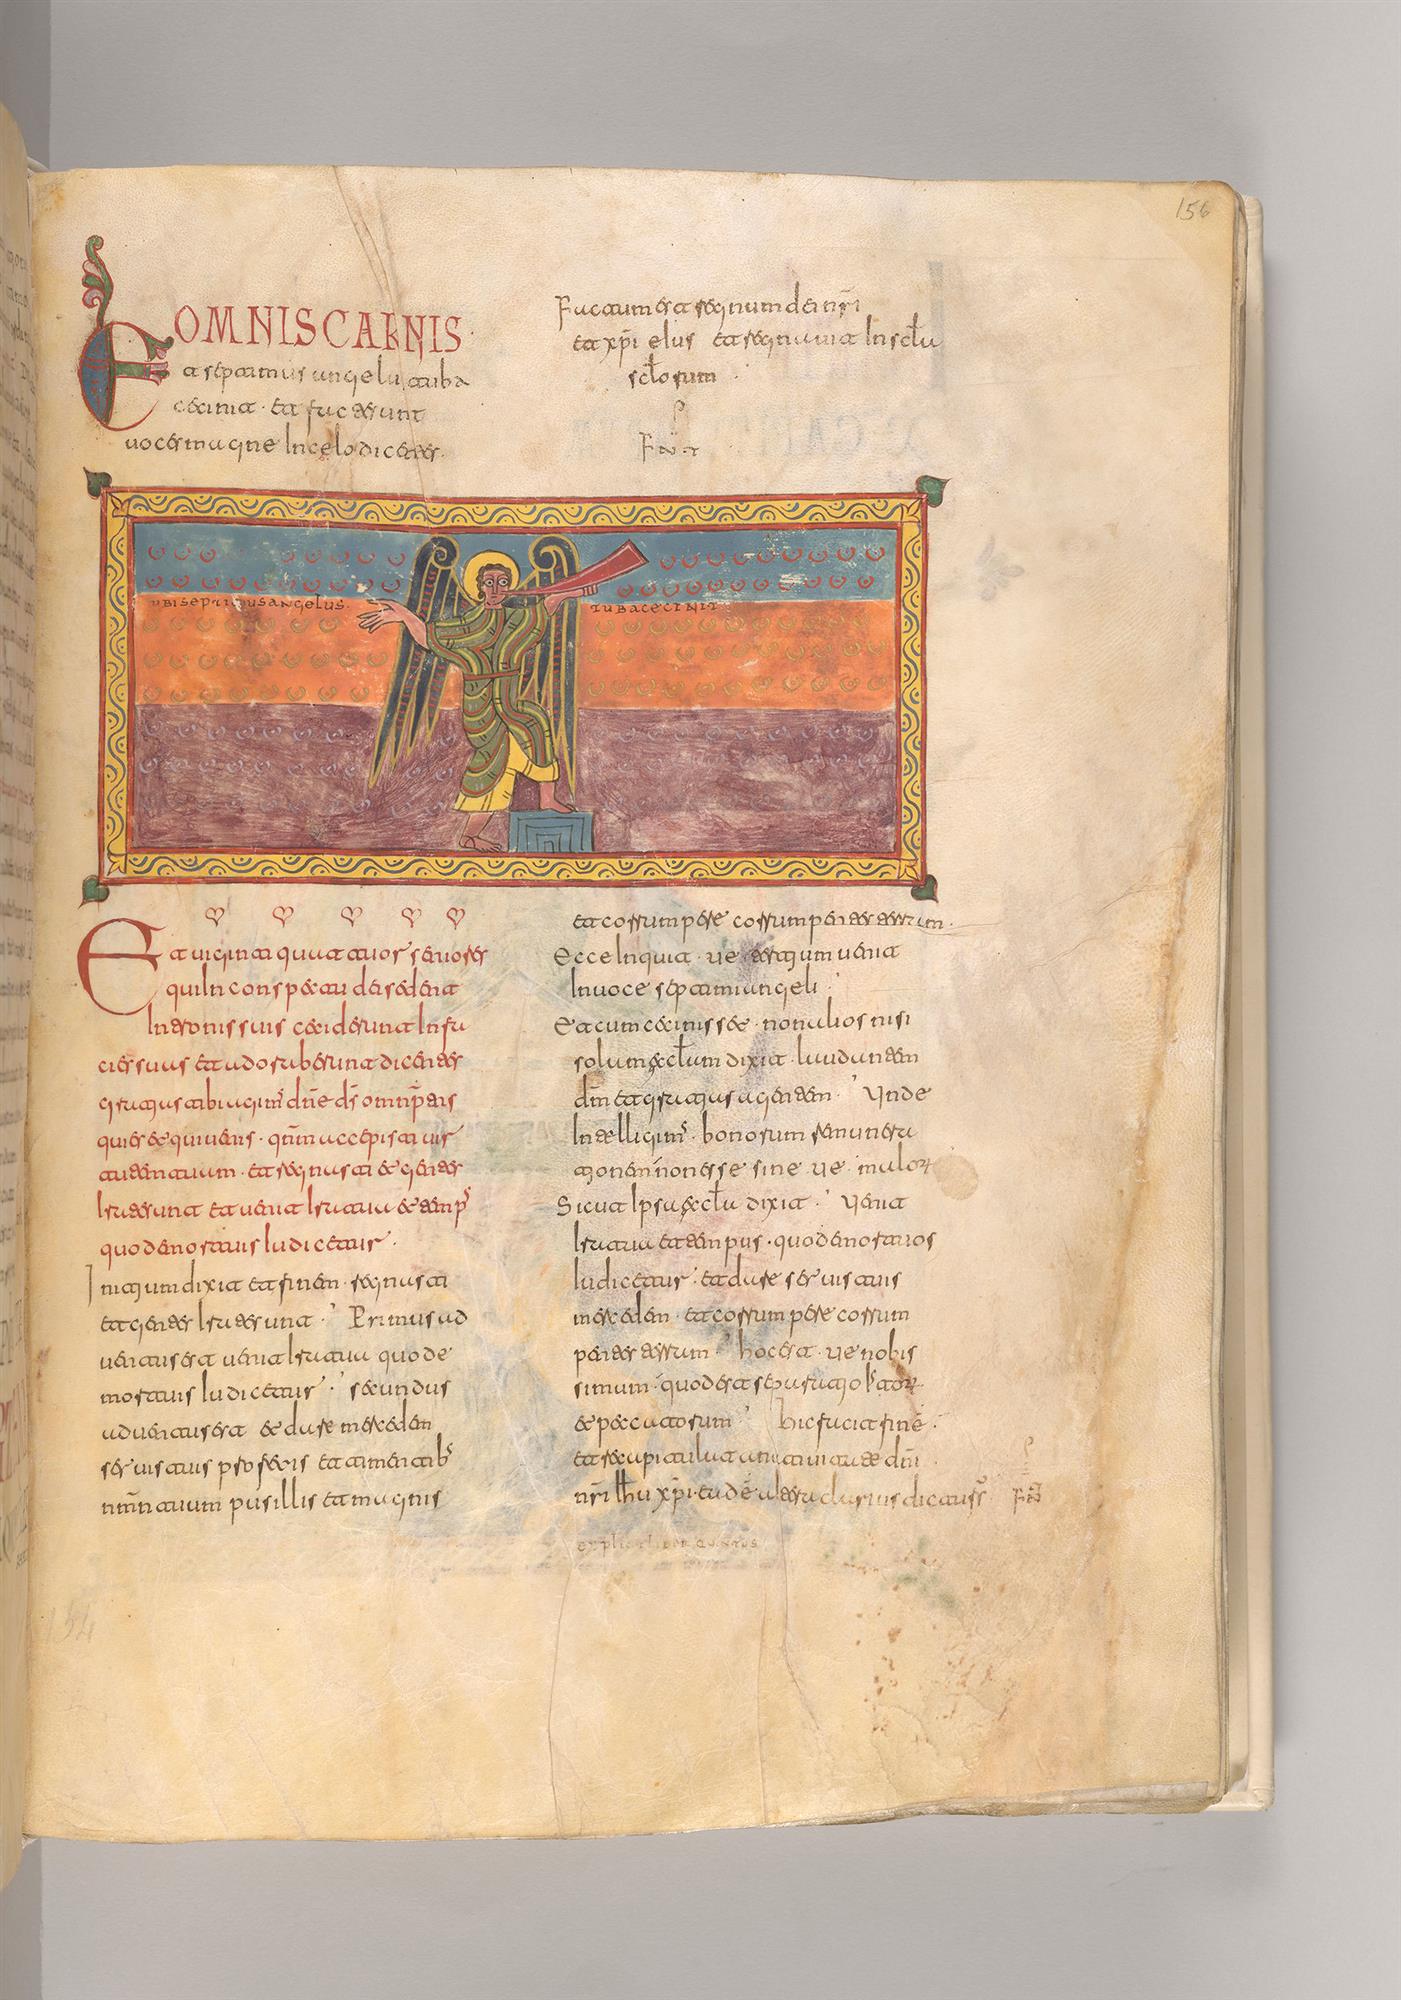 156
OMNIS CARNIS
Et septimus angelus tuba
cecinit · et facte sunt
uoces magne in celo dicentes.
Factum est regnum dei nri
et xpi eius et regnauit in scla
sclorum
UBI SEPTIMUS ANGELUS
TUBA CECINIT
Et uiginti quattuor seniores
qui in conspectu dei sedent
in tronis suis ceciderunt in fa
cies suas et adoraberunt dicentes
gratias tibi agims dne ds omnipts
qui es et qui uenis · qnm accepisti uir
tutem tuam · et regnasti et gentes
irate sunt et uenit ira tua et temps
quo de mortuis iudicetur ·
Initium dixit et finem · regnasti
et gentes irate sunt · Primus ad
uentus est uenit ira tua quo de
mortuis iudicetur · secundus
aduentus est et dare mercedem
seruis tuis profetis et timentibs
nmn tuum pusillis et magnis
et corrumpere corrumpentes terram ·
Ecce inquit · ve · tertium uenit
in uoce septimi angeli ·
Et cum cecinisset · non alios nisi
solum eclam dixit · laudantem
dm et gratias agentem · Vnde
intelligims · bonorum remunera
tionem non esse sine ve · malor
Sicut ipsa ecla dixit · Venit
ira tua et tempus · quo de mortuos
iudicetur · et dare seruis tuis
mercedem · et corrumpere corrum
pentes terram · hoc est · ve nobis
simum · quod est
et peccatorum · hic facit fine ·
et recapitulat a natiuitate dni
nri Ihu xpi · eadem dicturus
explicit liber quintus
154